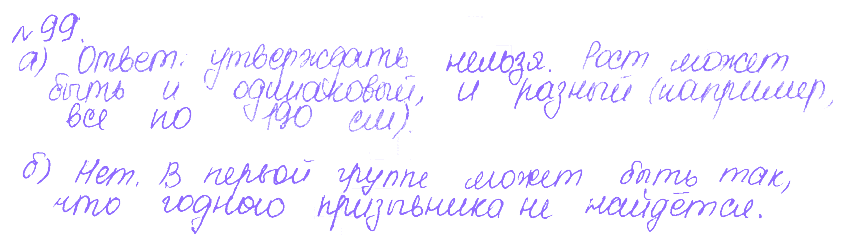 №99.
а) Ответ: утверждать нельзя. Рост может
быть и одинаковый, и разный (например,
все по 190 см).
б) Нет. В первой группе может быть так,
что годного призывника не найдётся.